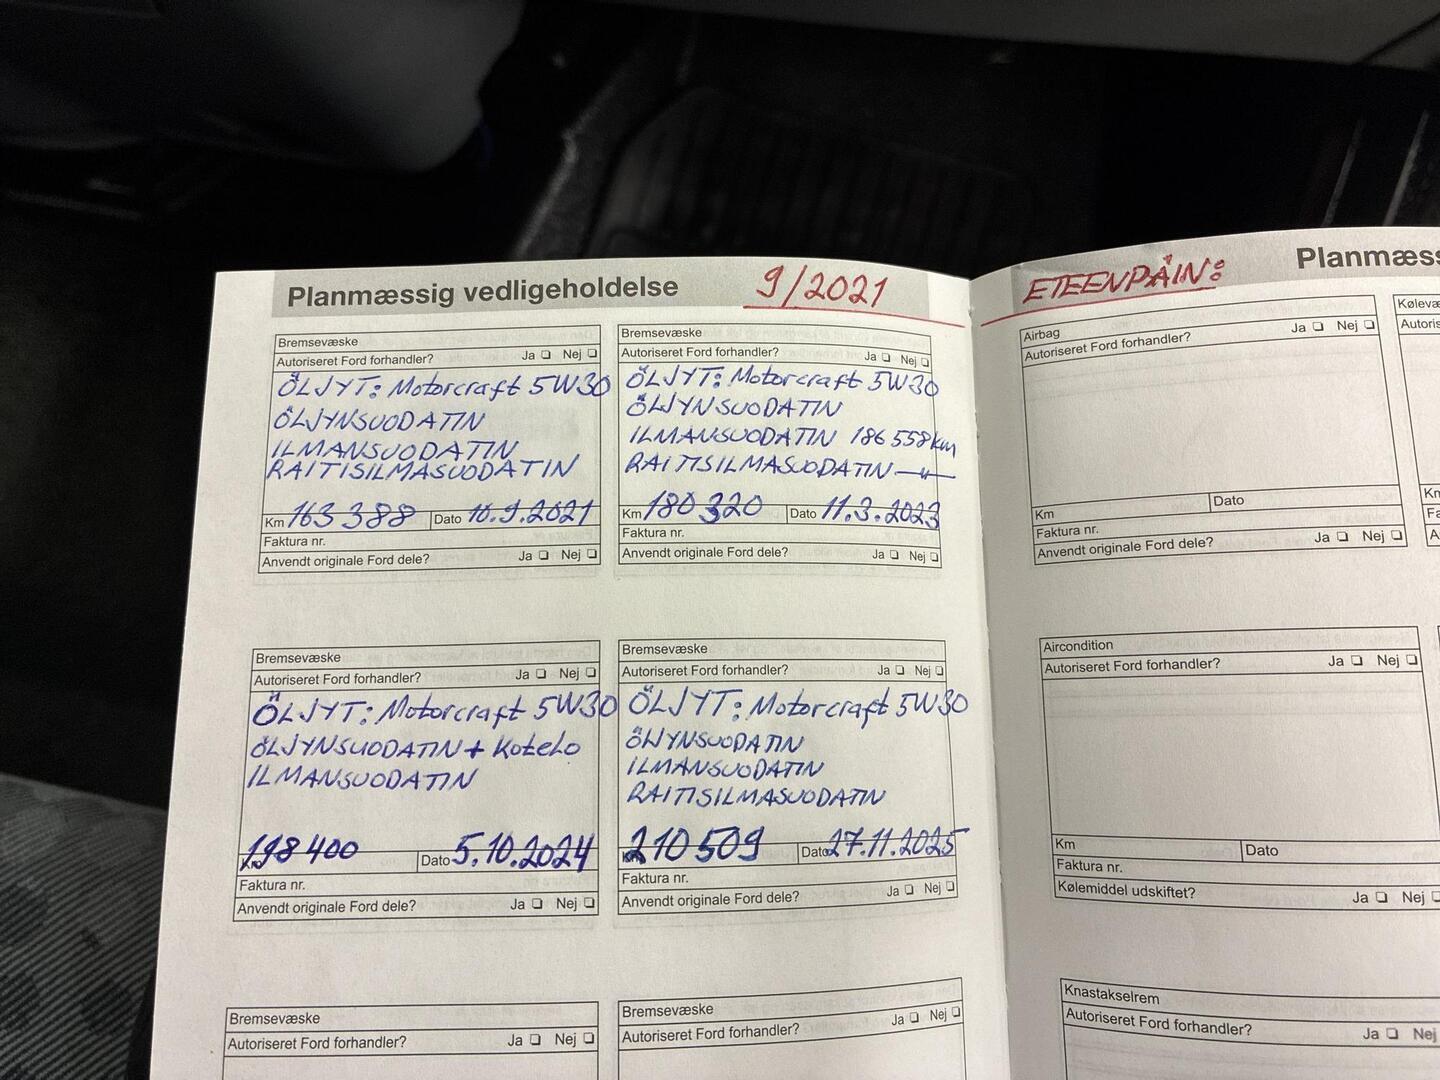 Planmæssig vedligeholdelse 9/2021
Bremsevæske
Autoriseret Ford forhandler? Ja Nej
ÖLJYT: Motorcraft 5W30
ÖLJYNSUODATIN
ILMANSUODATIN
RAITISILMASUODATIN
Km 163 388 Dato 10.9.2021
Faktura nr.
Anvendt originale Ford dele? Ja Nej
Bremsevæske
Autoriseret Ford forhandler? Ja Nej
ÖLJYT: Motorcraft 5W30
ÖLJYNSUODATIN
ILMANSUODATIN 186 558 km
RAITISILMASUODATIN —"—
Km 180 320 Dato 11.3.2023
Faktura nr.
Anvendt originale Ford dele? Ja Nej
Bremsevæske
Autoriseret Ford forhandler? Ja Nej
ÖLJYT: Motorcraft 5W30
ÖLJYNSUODATIN + Kotelo
ILMANSUODATIN
Km 198 400 Dato 5.10.2024
Faktura nr.
Anvendt originale Ford dele? Ja Nej
Bremsevæske
Autoriseret Ford forhandler? Ja Nej
ÖLJYT: Motorcraft 5W30
ÖLJYNSUODATIN
ILMANSUODATIN
RAITISILMASUODATIN
Km 210 509 Dato 27.11.2025
Faktura nr.
Anvendt originale Ford dele? Ja Nej
Bremsevæske
Autoriseret Ford forhandler? Ja Nej
Bremsevæske
Autoriseret Ford forhandler? Ja Nej
ETEENPÄIN: Planmæss
Airbag
Autoriseret Ford forhandler? Ja Nej
Km Dato
Faktura nr.
Anvendt originale Ford dele? Ja Nej
Kølevæ
Autoris
Km
Fa
A
Aircondition
Autoriseret Ford forhandler? Ja Nej
Km Dato
Faktura nr.
Kølemiddel udskiftet? Ja Nej
Knastakselrem
Autoriseret Ford forhandler? Ja Nej